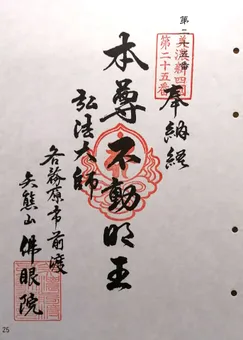 第二十五番
美濃新四国
第二十五番
奉納経
本尊不動明王
弘法大師
各務原市前渡
矢熊山
佛眼院
25